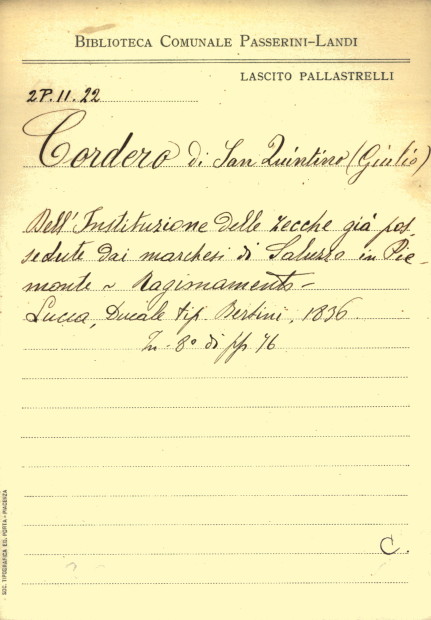 BIBLIOTECA COMUNALE PASSERINI-LANDI
LASCITO PALLASTRELLI
2P.11.22
Cordero di San Quintino (Giulio)
Dell'Instituzione delle zecche già pos-
sedute dai marchesi di Saluzzo in Pie-
monte ~ Ragionamento -
Lucca, Ducale tip. Bertini, 1836
In-8° di pp 76
C.
SOC. TIPOGRAFICA ED. PORTA - PIACENZA